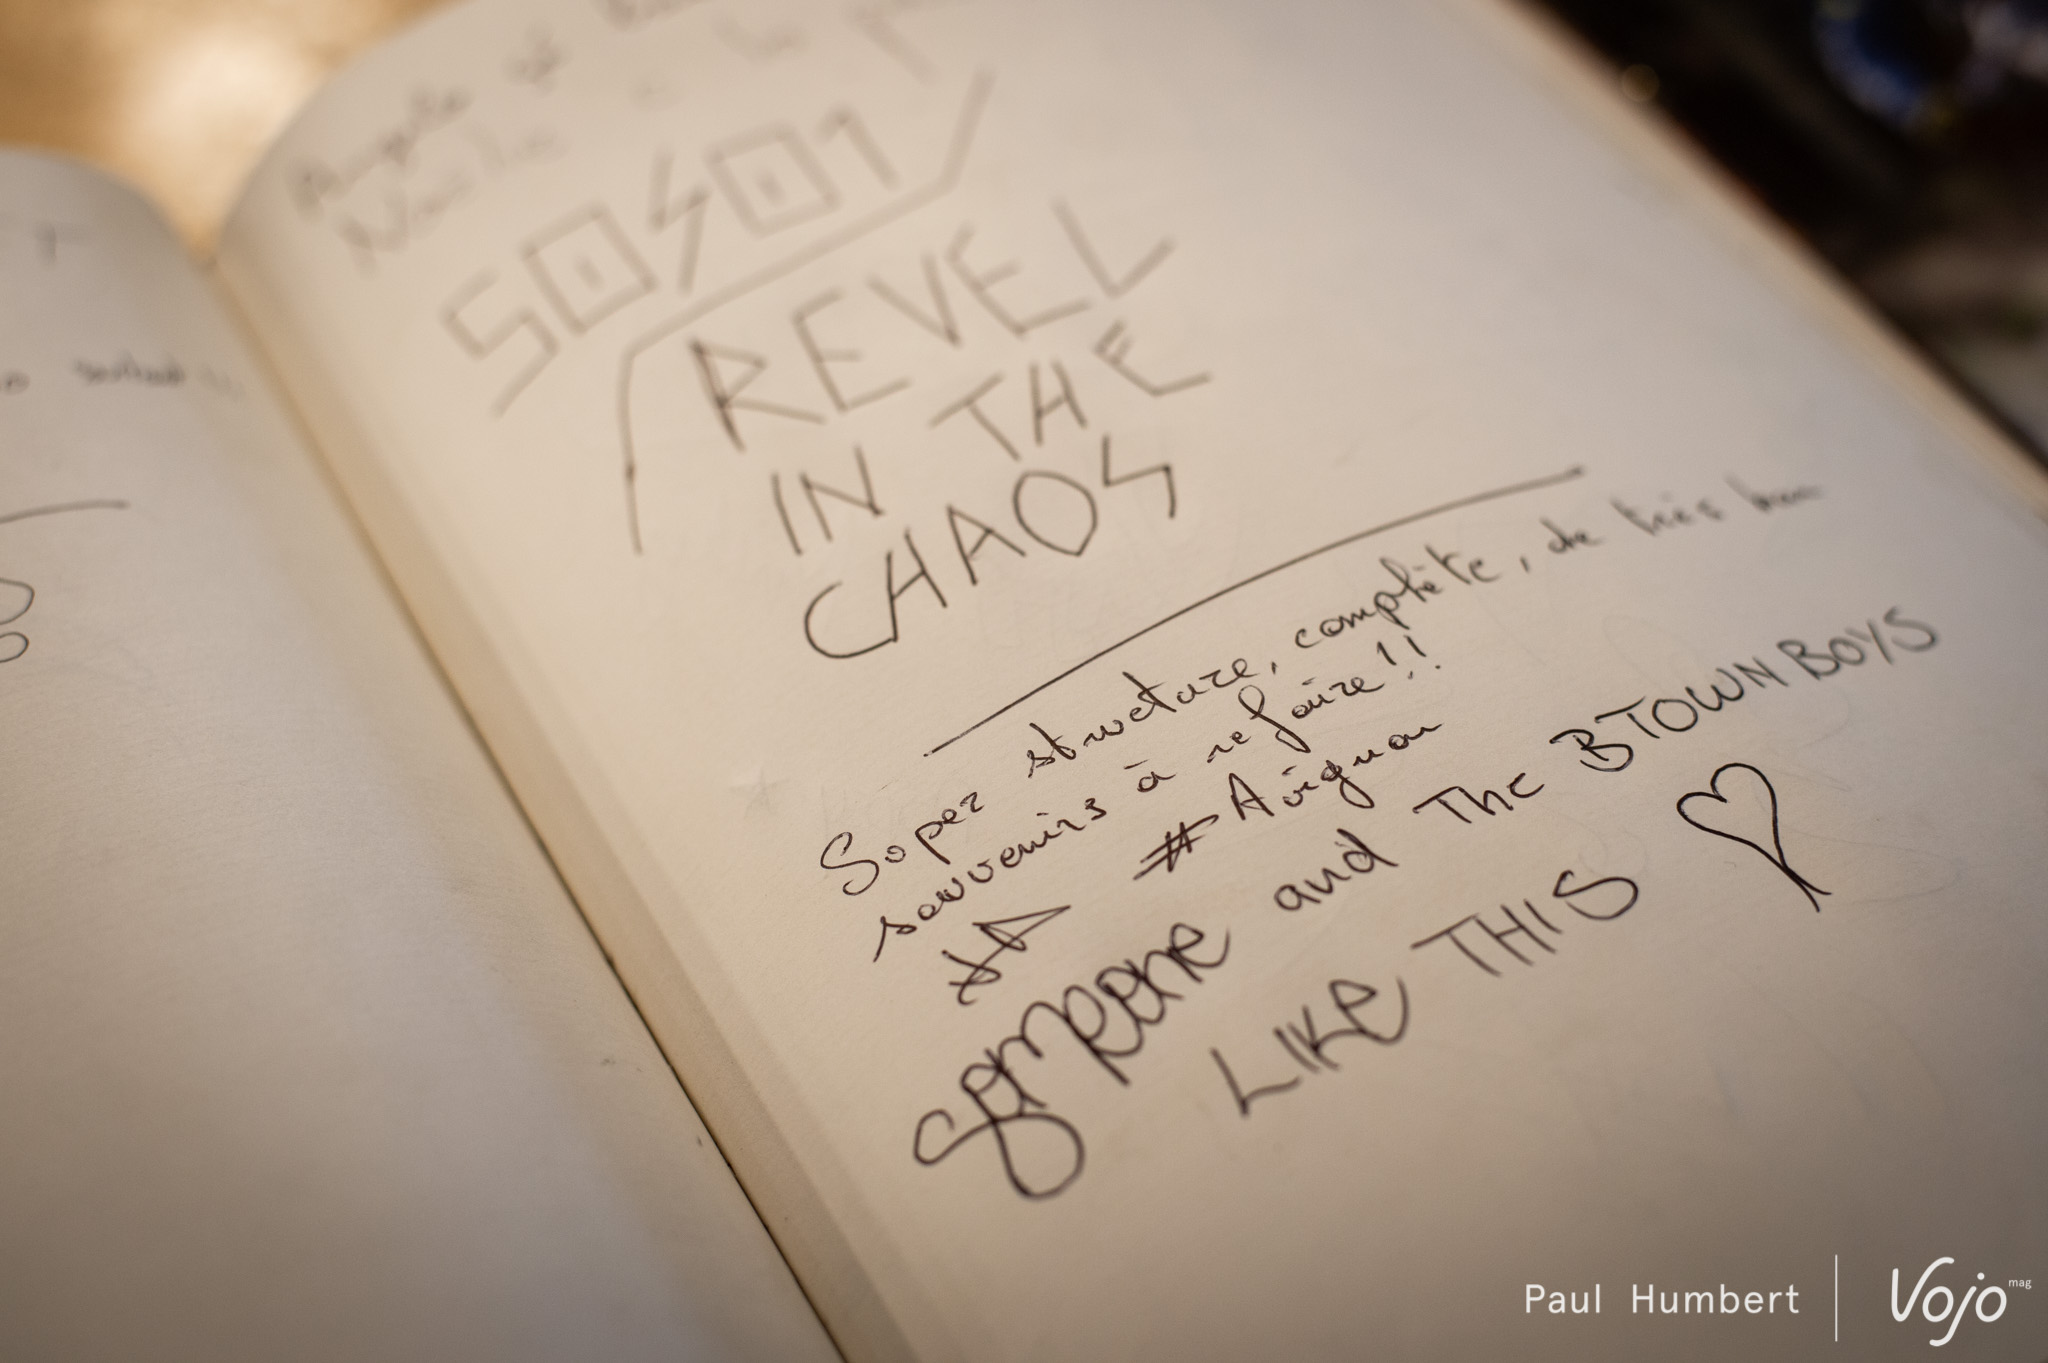 Angèle et
SOSO1
REVEL
IN THE
CHAOS
Super structure, complète, de très bon
souvenirs à refaire!!
#Avignon
Someone and The BTOWNBOYS
LIKE THIS
Paul Humbert
Vojo mag